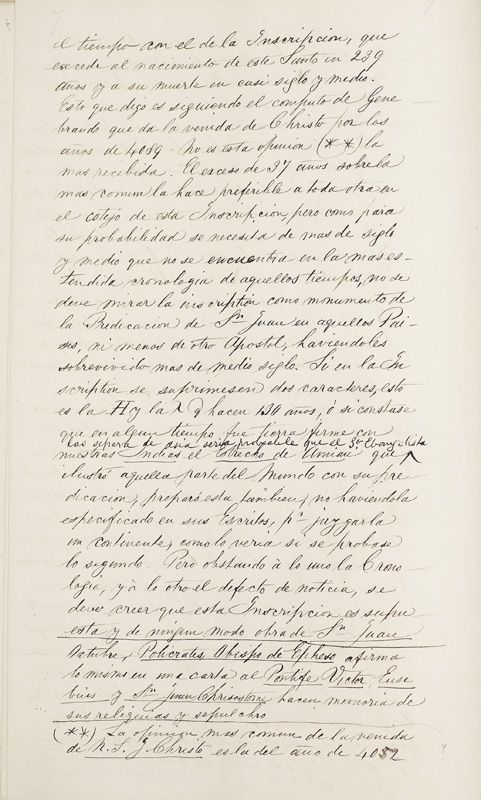 el tiempo con el de la Inscripcion, que
excede al nacimiento de este Santo in 239
años y a su muerte en casi siglo y medio.
Esto que digo es siguiendo el computo de Gene
brardo que da la venida de Christo por los
años de 4089. No es esta opinion (**) la
mas recibida. El exceso de 37 años sobre la
mas comun la hace preferible a toda otra en
el cotejo de esta Inscripcion, pero como para
su probabilidad se necesita de mas de siglo
y medio que no se encuentra en la mas es-
tendida cronologia de aquellos tiempos, no se
deve mirar la inscription como monumento de
la Predicacion de Sn Juan en aquellos Pai-
ses, ni menos de otro Apostol, haviendoles
sobrevivido mas de medio siglo. Si en la In
scription se suprimesen dos caracteres, esto
es la H y la λ q hacen 130 años, ó si constase
que en algun tiempo fue tierra firme con
las separa de asia seria probable que el Sto Evangelista
nuestras Indias el Estrecho de Amian que ^
ilustró aquella parte del Mundo con su pre
dicacion, pero esta tambien, no haviendola
especificado en sus Escritos, pa juzgarla
un continente, como lo veria si se probase
lo segundo. Pero obstando à lo uno la Crono-
logia, y à lo otro el defecto de noticia, se
deve creer que esta Inscripcion es supu
esta y de ningun modo obra de Sn Juan
Octubre, Policrates, Obispo de Epheso afirma
lo mismo en una carta al Pontife Victor, Euse
bius y Sn Juan Chrisostome hacen memoria de
sus reliquias y sepulchro
(**) La opinion mas comun de la venida
de N. S. J. Christo es la del año de 4052